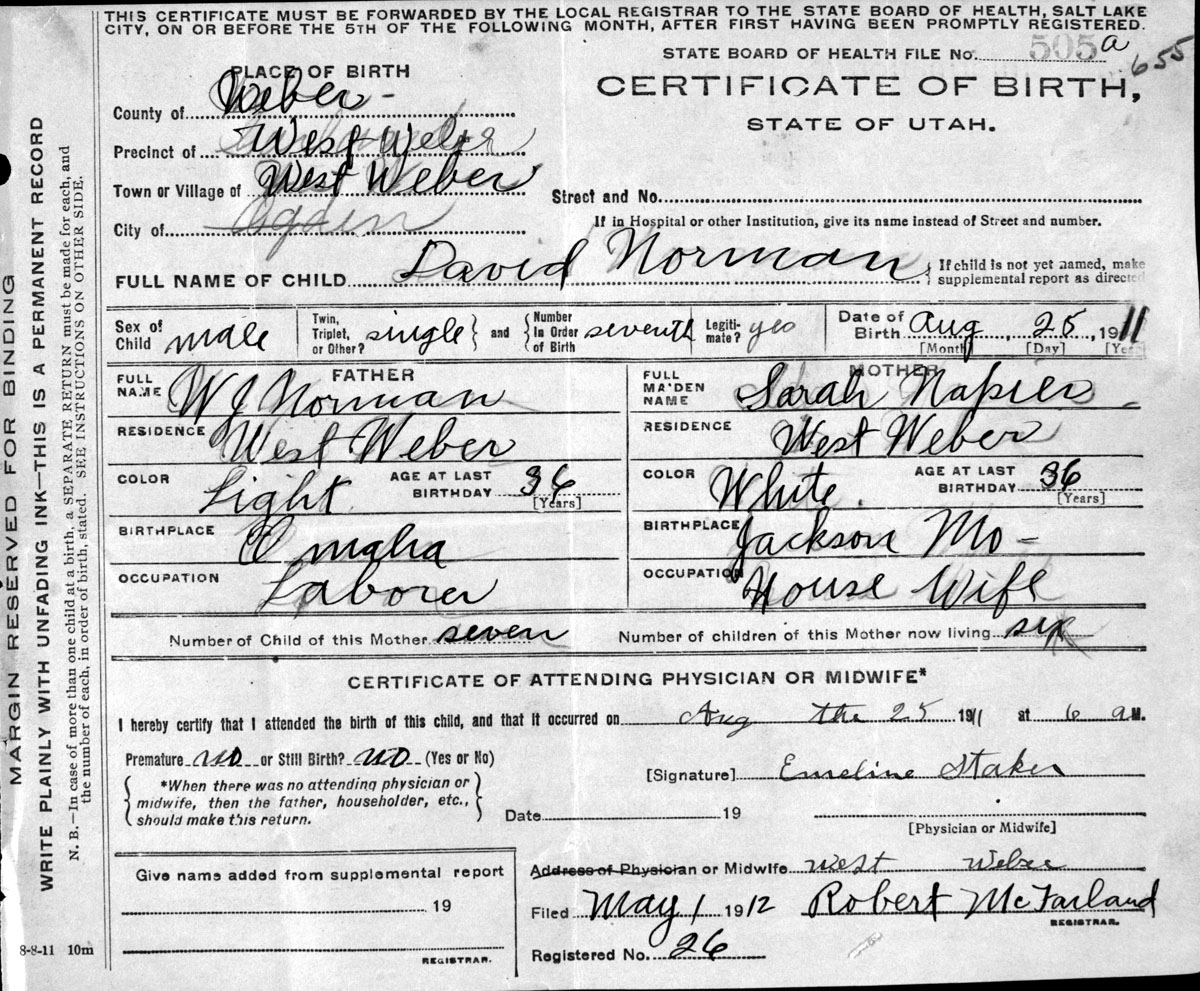 THIS CERTIFICATE MUST BE FORWARDED BY THE LOCAL REGISTRAR TO THE STATE BOARD OF HEALTH, SALT LAKE
CITY, ON OR BEFORE THE 5TH OF THE FOLLOWING MONTH, AFTER FIRST HAVING BEEN PROMPTLY REGISTERED.
STATE BOARD OF HEALTH FILE No. 505a
655
CERTIFICATE OF BIRTH,
STATE OF UTAH.
PLACE OF BIRTH
County of Weber -
Precinct of West Weber
Town or Village of West Weber
Street and No.
City of Ogden
If in Hospital or other Institution, give its name instead of Street and number.
FULL NAME OF CHILD David Norman
If child is not yet named, make
supplemental report as directed
Sex of Child male
Twin, Triplet, or Other? single and Number In Order of Birth seventh
Legitimate? yes
Date of Birth Aug 25, 1911
[Month] [Day] [Year]
FATHER
FULL NAME W J Norman
RESIDENCE West Weber
COLOR Light AGE AT LAST BIRTHDAY 36
[Years]
BIRTHPLACE Omaha
OCCUPATION Laborer
MOTHER
FULL MAIDEN NAME Sarah Napier
RESIDENCE West Weber
COLOR White. AGE AT LAST BIRTHDAY 36
[Years]
BIRTHPLACE Jackson Mo -
OCCUPATION House Wife
Number of Child of this Mother seven Number of children of this Mother now living six
CERTIFICATE OF ATTENDING PHYSICIAN OR MIDWIFE*
I hereby certify that I attended the birth of this child, and that it occurred on Aug the 25 1911 at 6 a M.
Premature no or Still Birth? no (Yes or No)
*When there was no attending physician or
midwife, then the father, householder, etc.,
should make this return.
[Signature] Emeline Staker
Date 19
[Physician or Midwife]
Give name added from supplemental report
19
REGISTRAR.
Address of Physician or Midwife West Weber
Filed May 1 1912 Robert McFarland
REGISTRAR.
Registered No. 26
8-8-11 10m
MARGIN RESERVED FOR BINDING
WRITE PLAINLY WITH UNFADING INK—THIS IS A PERMANENT RECORD
N. B.—In case of more than one child at a birth, a SEPARATE RETURN must be made for each, and
the number of each, in order of birth, stated. SEE INSTRUCTIONS ON OTHER SIDE.